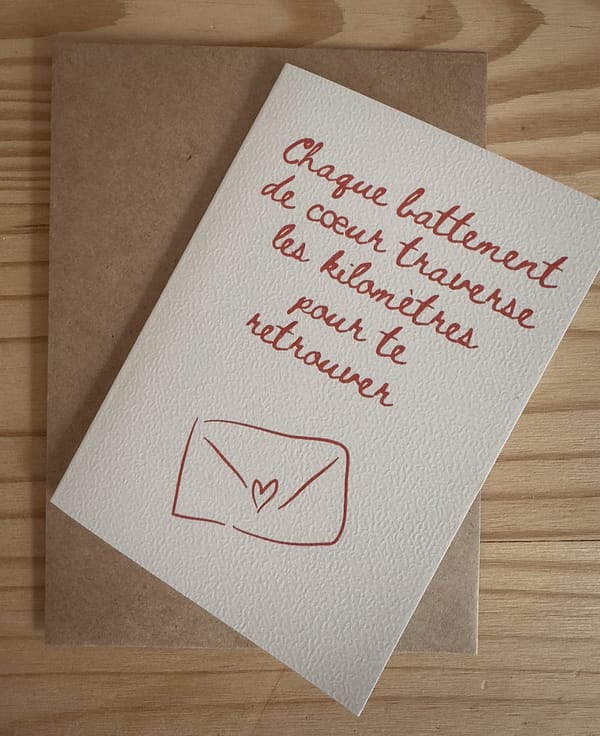 Chaque battement
de cœur traverse
les kilomètres
pour te
retrouver